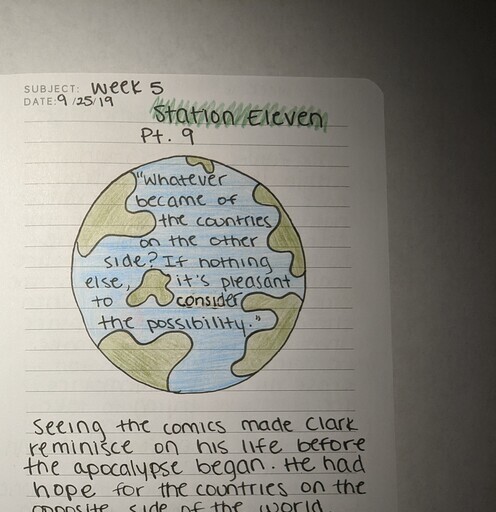 SUBJECT: Week 5
DATE: 9/25/19
Station Eleven
Pt. 9
"Whatever
became of
the countries
on the other
side? If nothing
else, it's pleasant
to consider
the possibility."
Seeing the comics made Clark
reminisce on his life before
the apocalypse began. He had
hope for the countries on the
opposite side of the world